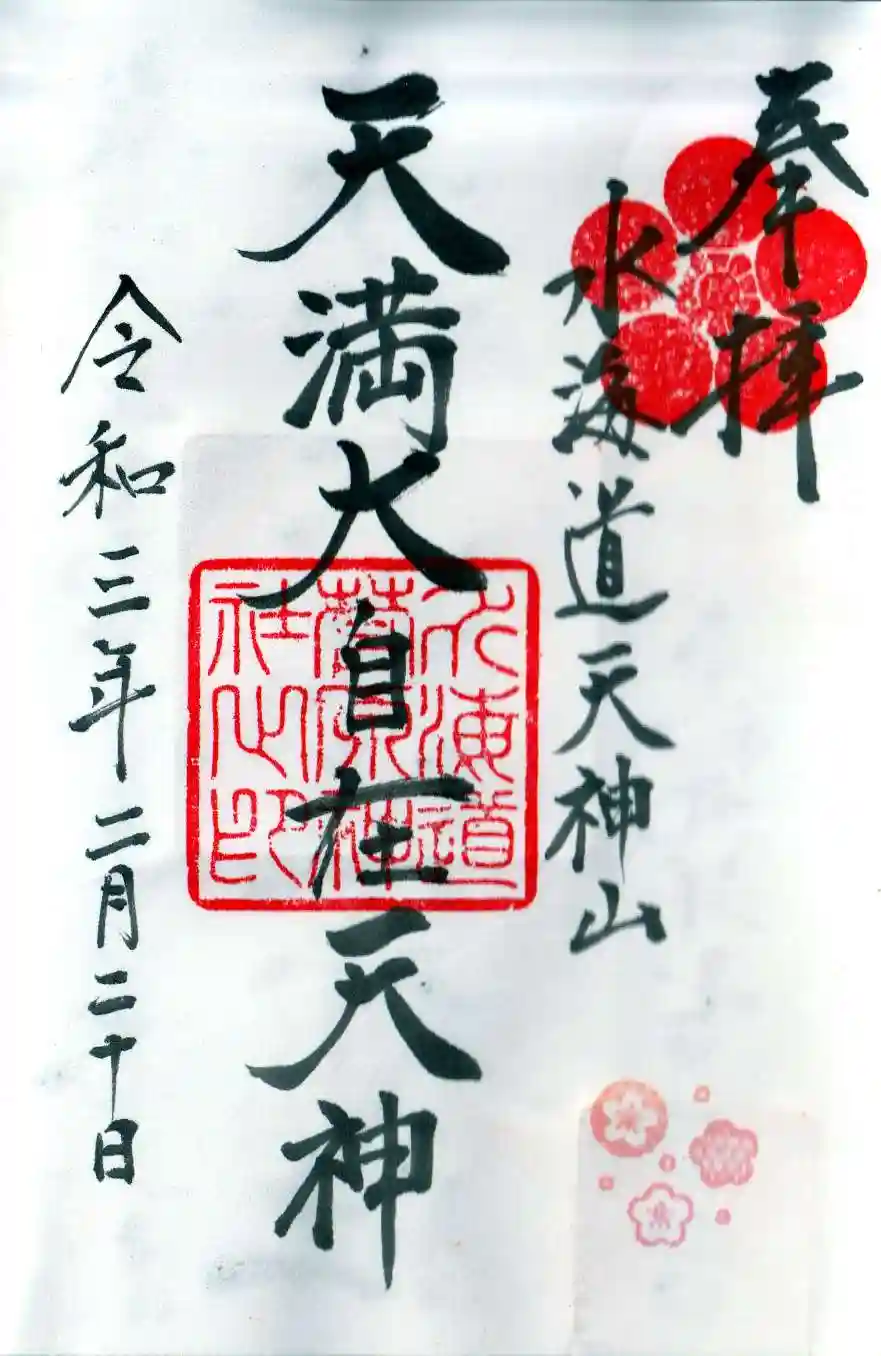 奉拝
水海道天神山
天満大自在天神
水海道
菅原神
社之印
令和三年二月二十日